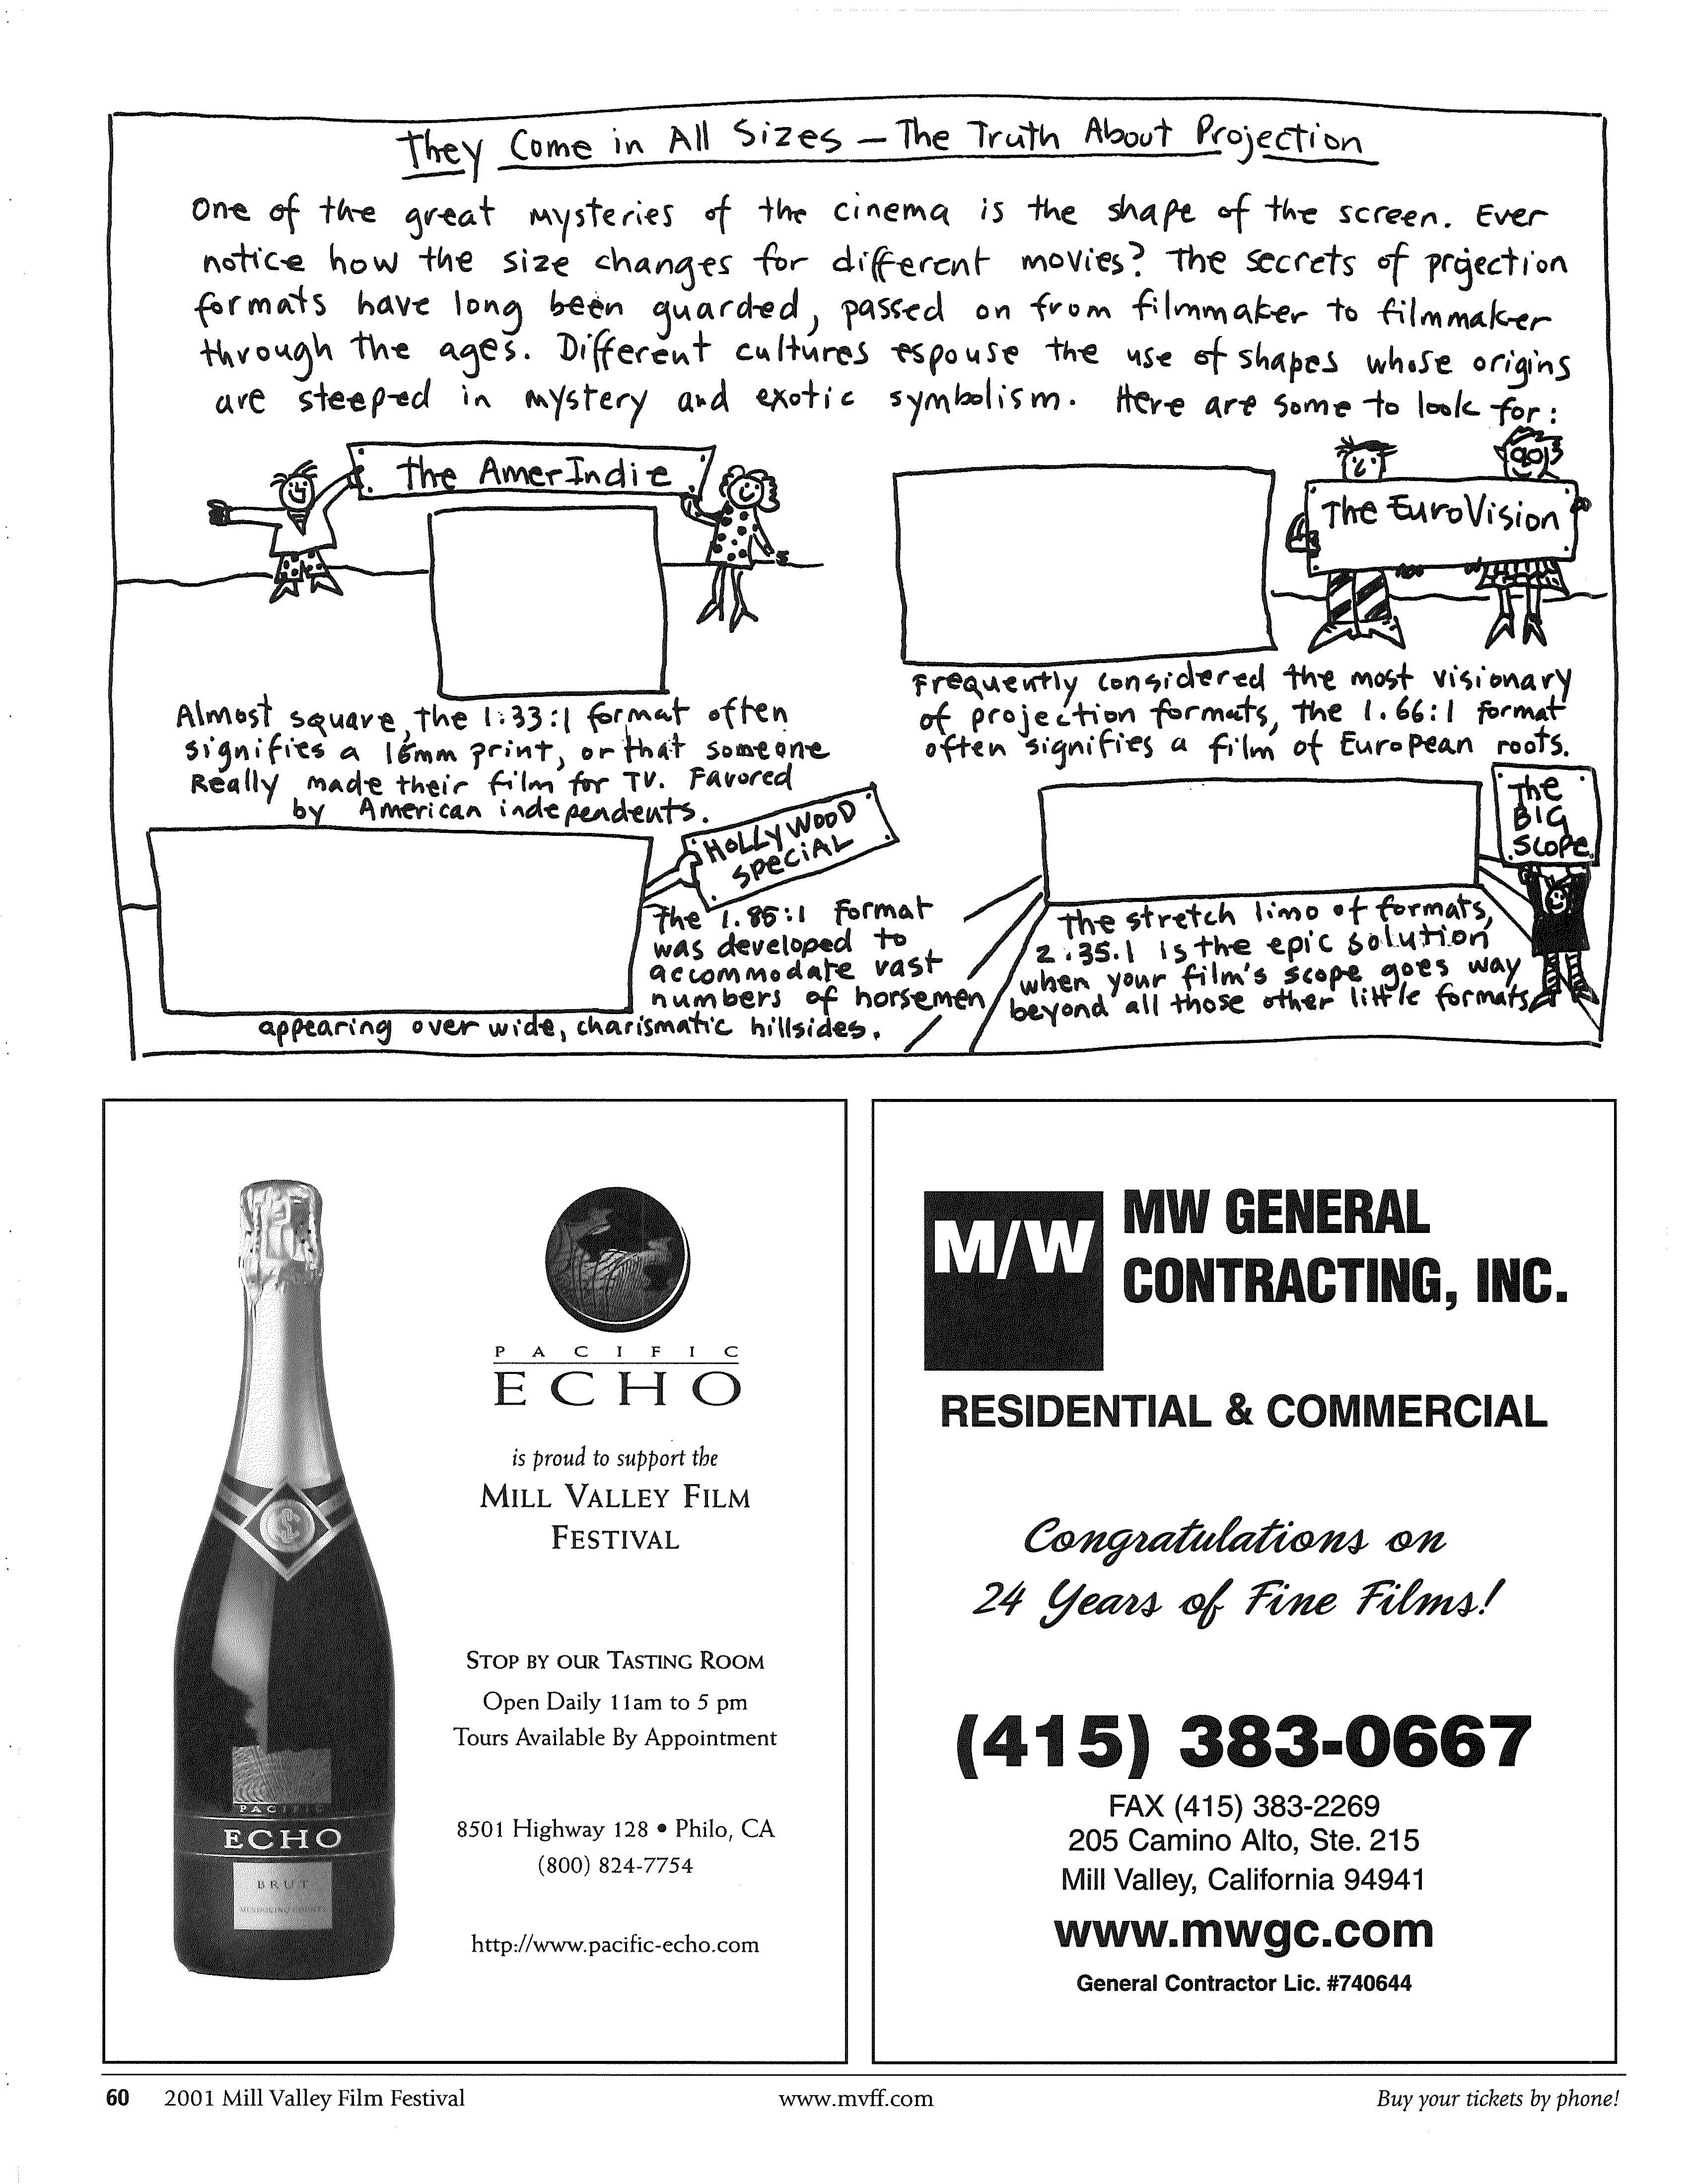 They Come in All Sizes — The Truth About Projection
One of the great mysteries of the cinema is the shape of the screen. Ever
notice how the size changes for different movies? The secrets of projection
formats have long been guarded, passed on from filmmaker to filmmaker
through the ages. Different cultures espouse the use of shapes whose origins
are steeped in mystery and exotic symbolism. Here are some to look for:
The AmerIndie
Almost square, the 1:33:1 format often
signifies a 16mm print, or that someone
Really made their film for TV. Favored
by American independents.
The EuroVision
Frequently considered the most visionary
of projection formats, the 1.66:1 format
often signifies a film of European roots.
HOLLYWOOD
SPECIAL
The 1.85:1 format
was developed to
accommodate vast
numbers of horsemen
appearing over wide, charismatic hillsides.
The
BIG
SCOPE
The stretch limo of formats,
2:35.1 is the epic solution
when your film's scope goes way
beyond all those other little formats
PACIFIC
ECHO
is proud to support the
MILL VALLEY FILM
FESTIVAL
STOP BY OUR TASTING ROOM
Open Daily 11am to 5 pm
Tours Available By Appointment
8501 Highway 128 • Philo, CA
(800) 824-7754
http://www.pacific-echo.com
PACIFIC
ECHO
BRUT
MENDOCINO COUNTY
M/W
MW GENERAL
CONTRACTING, INC.
RESIDENTIAL & COMMERCIAL
Congratulations on
24 Years of Fine Films!
(415) 383-0667
FAX (415) 383-2269
205 Camino Alto, Ste. 215
Mill Valley, California 94941
www.mwgc.com
General Contractor Lic. #740644
60 2001 Mill Valley Film Festival
www.mvff.com
Buy your tickets by phone!